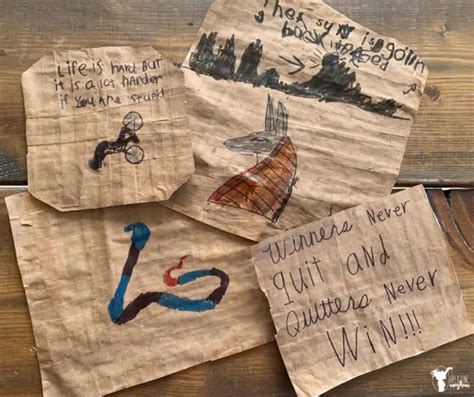 Life is hard But
it is a Lot harder
if You Are stupid
back
Winners Never
quit and
Quitters Never
Win!!!